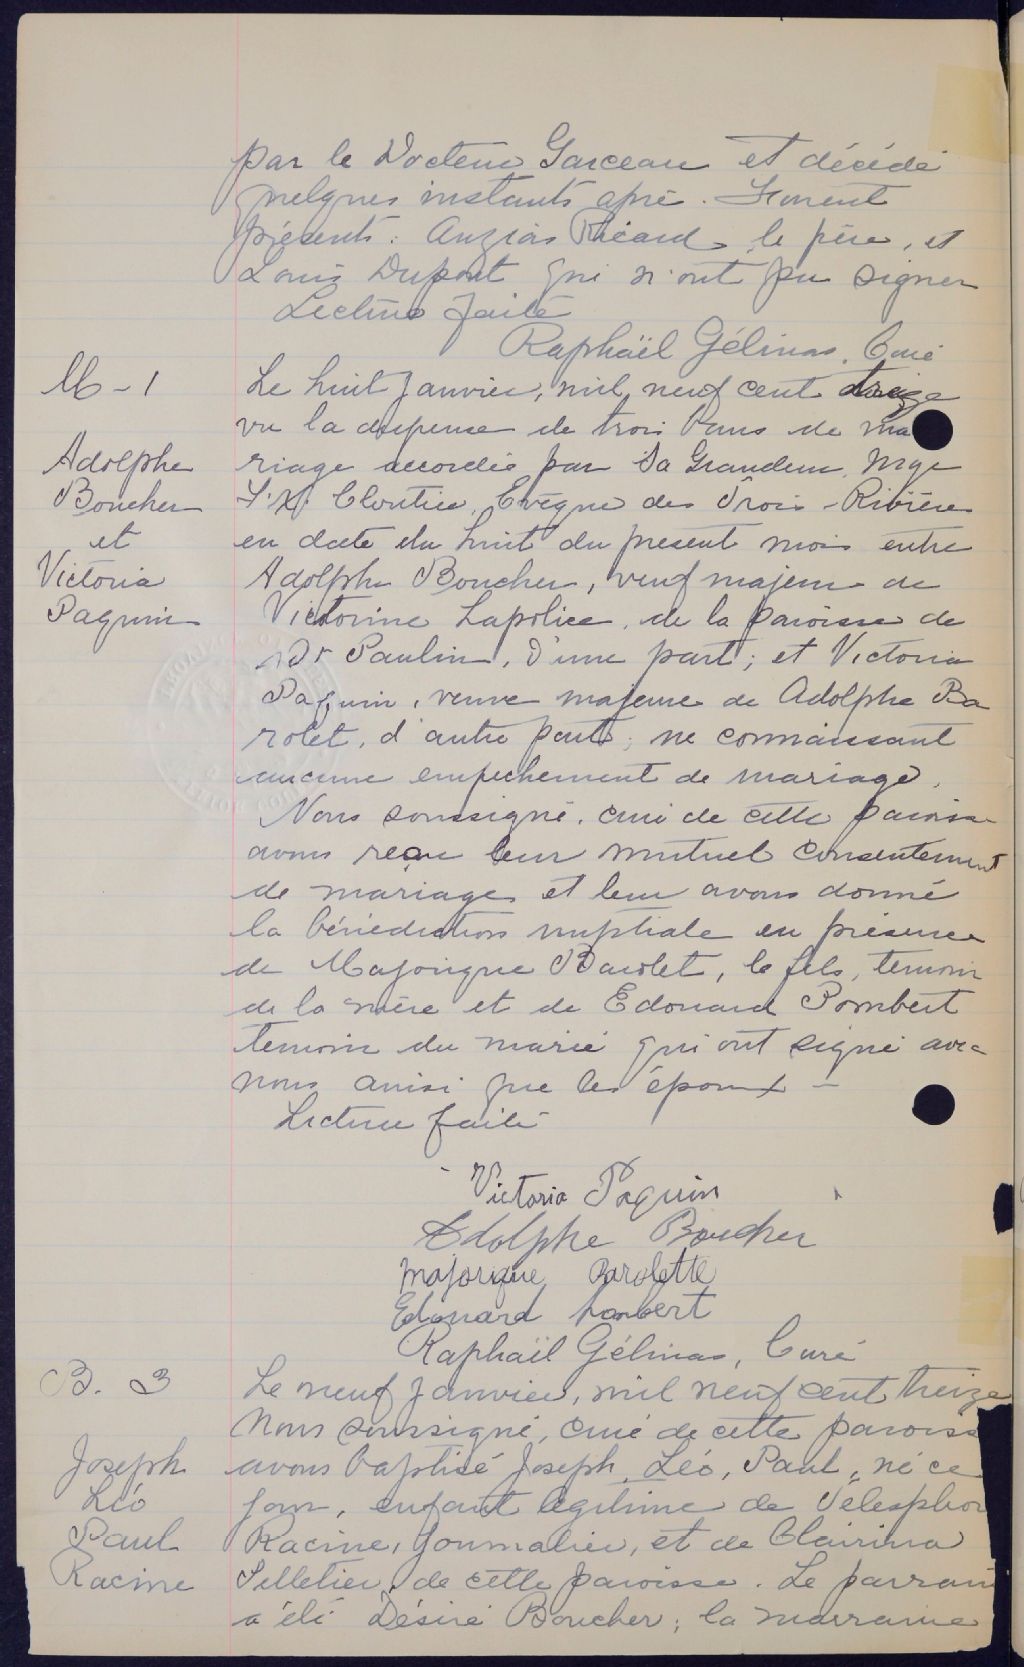 par le Docteur Garceau et décédé
quelques instants après. Furent
présents: Auzias Ricard, le père, et
Louis Dupont qui n'ont pu signer
Lecture faite
Raphaël Gélinas, Curé
M-1
Adolphe
Boucher
et
Victoria
Paquin
Le huit Janvier, mil neuf cent treize
vu la dispense de trois bans de ma
riage accordée par Sa Grandeur Mgr
F.X. Cloutier, Evêque des Trois-Rivières
en date du huit du present mois entre
Adolphe Boucher, veuf majeur de
Victorine Lapolice, de la paroisse de
St Paulin, d'une part; et Victoria
Paquin, veuve majeure de Adolphe Ba
rolet, d'autre part; ne connaissant
aucune empechement de mariage.
Nous soussigné, curé de cette paroisse
avons reçu leur mutuel consentement
de mariage et leur avons donné
la bénédiction nuptiale en présence
de Majorique Barolet, le fils, temoin
de la mère et de Edouard Pombert
temoin du marié qui ont signé avec
nous ainsi que les époux -
Lecture faite
Victoria Paquin
Adolphe Boucher
Majorique Barolette
Edouard
Raphaël Gélinas, Curé
B. 3
Joseph
Léo
Paul
Racine
Le neuf Janvier, mil neuf cent treize
Nous soussigné, curé de cette paroisse
avons baptisé Joseph, Léo, Paul, né ce
jour, enfant légitime de Télesphor
Racine, Journalier, et de Clairina
Pelletier, de cette paroisse. Le parrain
a été Désiré Boucher; la marraine